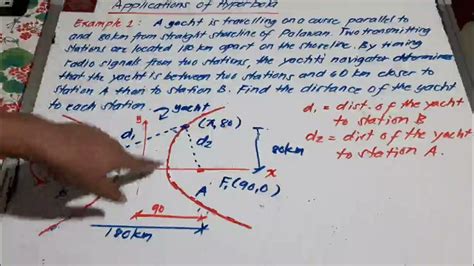 Applications of Hyperbola
Example 1: A yacht is travelling on a course parallel to
and 80km from straight shoreline of Palawan. Two transmitting
stations are located 180 km apart on the shoreline. By timing
radio signals from two stations, the yacht's navigator determines
that the yacht is between two stations and 60 km closer to
station A than to station B. Find the distance of the yacht
to each station.
yacht
d₁ = dist. of the yacht
to station B
d₂ = dist of the yacht
to station A.
(x,80)
d₁
d₂
80km
x
A
F₁(90,0)
90
180km